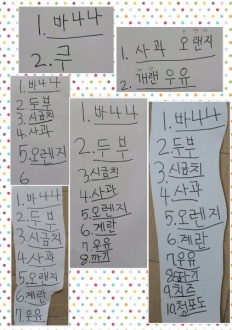 1. 바나나
2. 두
1. 사과 오랜지
2. 개랜 우유
1. 바나나
2. 두부
3. 시금치
4. 사과
5. 오렌지
6
1. 바나나
2. 두부
3. 시금치
4. 사과
5. 오렌지
6. 계란
7. 우유
1. 바나나
2. 두부
3. 시금치
4. 사과
5. 오렌지
6. 계란
7. 우유
8.
1. 바나나
2. 두부
3. 시금치
4. 사과
5. 오렌지
6. 계란
7. 우유
8. 딸기
9. 치즈
10. 청포도